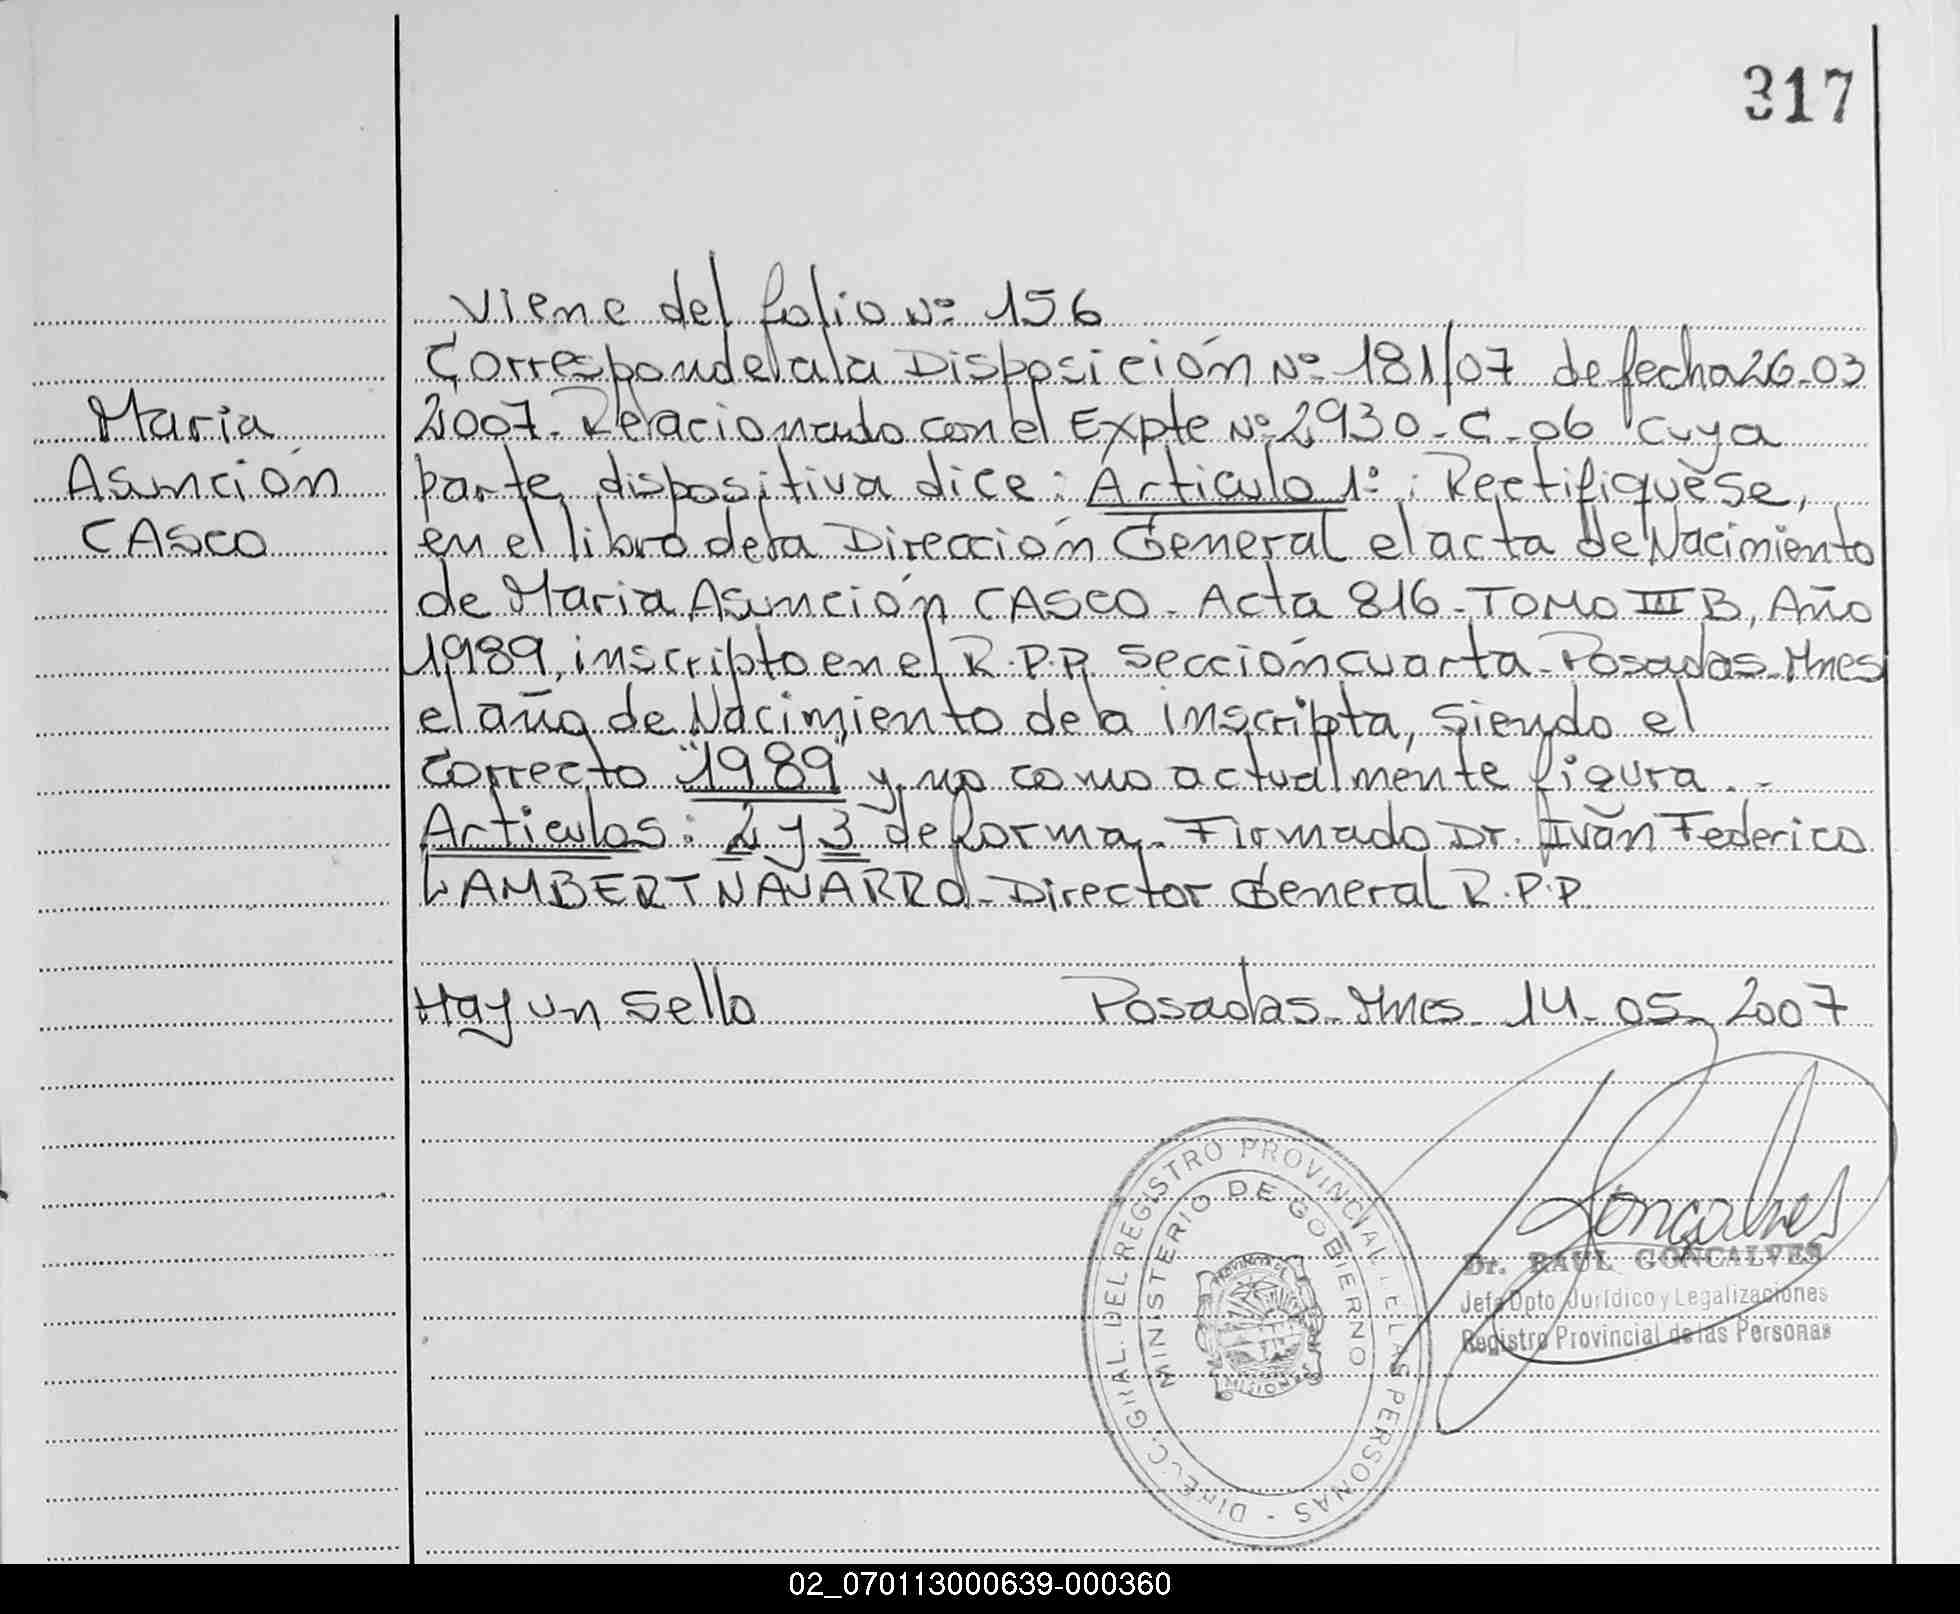 317
Viene del folio Nº 156
Corresponde a la Disposición Nº 181/07 de fecha 26-03
Maria
2007- Relacionado con el Expte Nº 2930-C-06 cuya
Asunción
parte dispositiva dice: Articulo 1º: Rectifiquèse,
CASCO
en el libro de la Dirección General el acta de Nacimiento
de Maria Asunción CASCO- Acta 816- TOMO III B, Año
1989, inscripto en el R.P.P. Sección cuarta- Posadas- Mnes
el año de Nacimiento de la inscripta, siendo el
correcto "1989" y no como actualmente figura.-
Articulos: 2 y 3 de forma- Firmado Dr. Iván Federico
LAMBERT NAVARRO- Director General R.P.P.
Hay un sello Posadas- Mnes- 14-05-2007
DIRECC. GRAL. DEL REGISTRO PROVINCIAL DE LAS PERSONAS -
MINISTERIO DE GOBIERNO
PROVINCIA DE
MISIONES
Goncalves
Dr. RAUL GONCALVES
Jefe Dpto Jurídico y Legalizaciones
Registro Provincial de las Personas
02_070113000639-000360